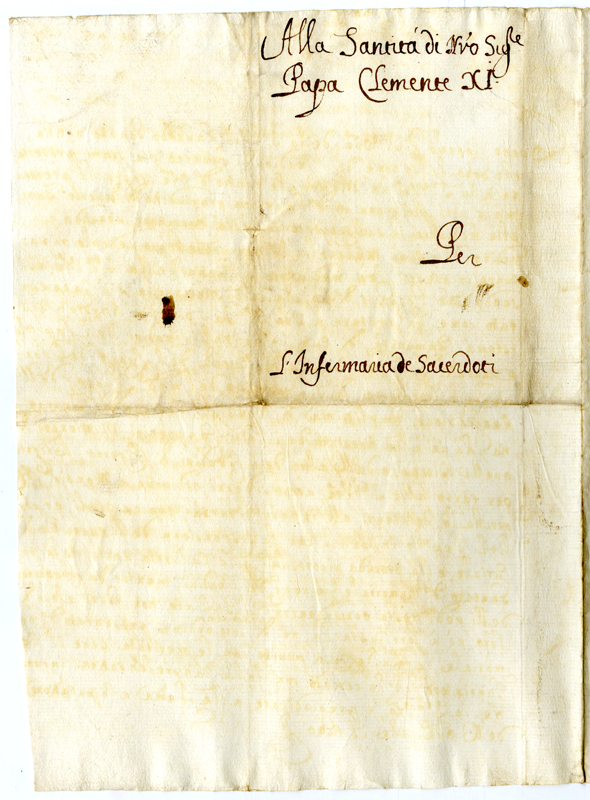 Alla Santità di Nr̃o Sigre
Papa Clemente XI.
Per
L'Infermaria de Sacerdoti